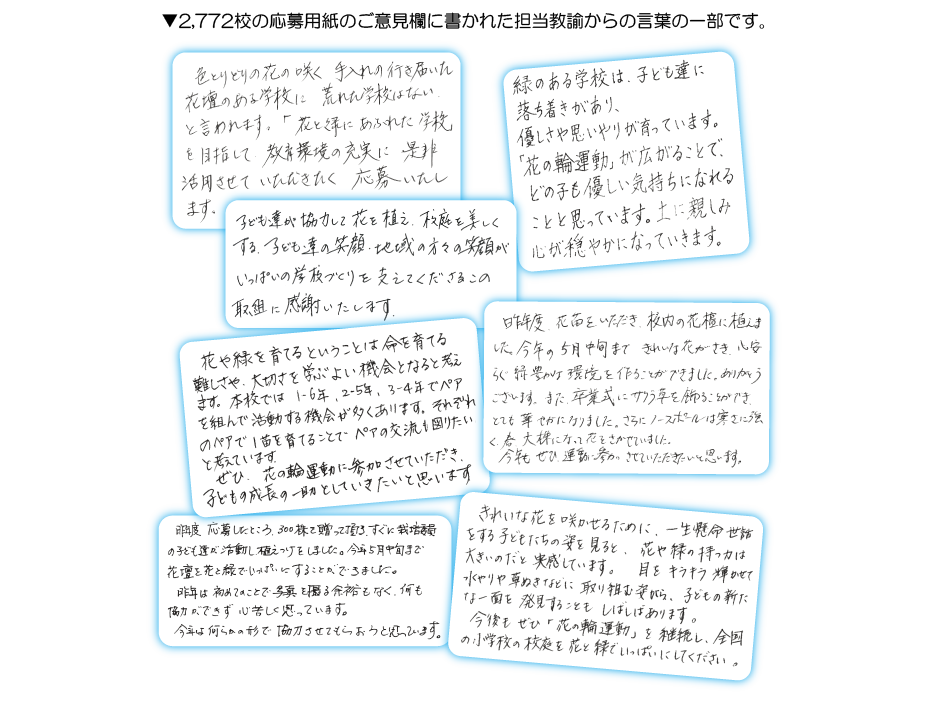 ▼2,772校の応募用紙のご意見欄に書かれた担当教諭からの言葉の一部です。
色とりどりの花の咲く 手入れの行き届いた
花壇のある学校に 荒れた学校はない
と言われます。「花と緑にあふれた学校
を目指して 教育環境の充実に 是非
活用させて いただきたく 応募いたし
ます。
緑のある学校は、子ども達に
落ち着きがあり、
優しさや思いやりが育っています。
「花の輪運動」が広がることで、
どの子も優しい気持ちになれる
ことと思っています。土に親しみ
心が穏やかになっていきます。
子ども達が協力して花を植え、校庭を美しく
する。子ども達の笑顔・地域の方々の笑顔が
いっぱいの学校づくりを支えてくださるこの
取組に感謝いたします。
花や緑を育てるということは命を育てる
難しさや、大切さを学ぶよい機会となると考え
ます。本校では 1-6年、2-5年、3-4年でペア
を組んで活動する機会が多くあります。それぞれ
のペアで1苗を育てることでペアの交流も図りたい
と考えています。
ぜひ、花の輪運動に参加させていただき、
子どもの成長の一助としていきたいと思います
昨年度、花苗をいただき、校内の花檀に植えま
した。今年の5月中旬まで きれいな花がさき、心安
らぐ緑豊かな環境を作ることができました。ありがとう
ございます。また、卒業式に を飾ることができ、
とても華やかになりました。さらにノースポールは寒さに強
く、春、大株になって花をさかせていました。
今年も ぜひ運動に参加させていただきたいと思います。
昨年度 応募したところ、300株も贈って頂き、すぐに栽培委員
の子ども達が活動し植えつけをしました。今年5月中旬まで
花壇を花と緑でいっぱいにすることができました。
昨年は初めてのことで写真を撮る余裕もなく、何も
協力ができず 心苦しく思っています。
今年は何らかの形で協力させてもらおうと思っています。
きれいな花を咲かせるために、一生懸命世話
をする子どもたちの姿を見ると、花や緑の持つ力は
大きいのだと実感しています。目をキラキラ輝かせて
水やりや草ぬきなどに取り組む姿から、子どもの新た
な一面を発見することも しばしばあります。
今後も ぜひ「花の輪運動」を継続し、全国
の小学校の校庭を花と緑でいっぱいにしてください。